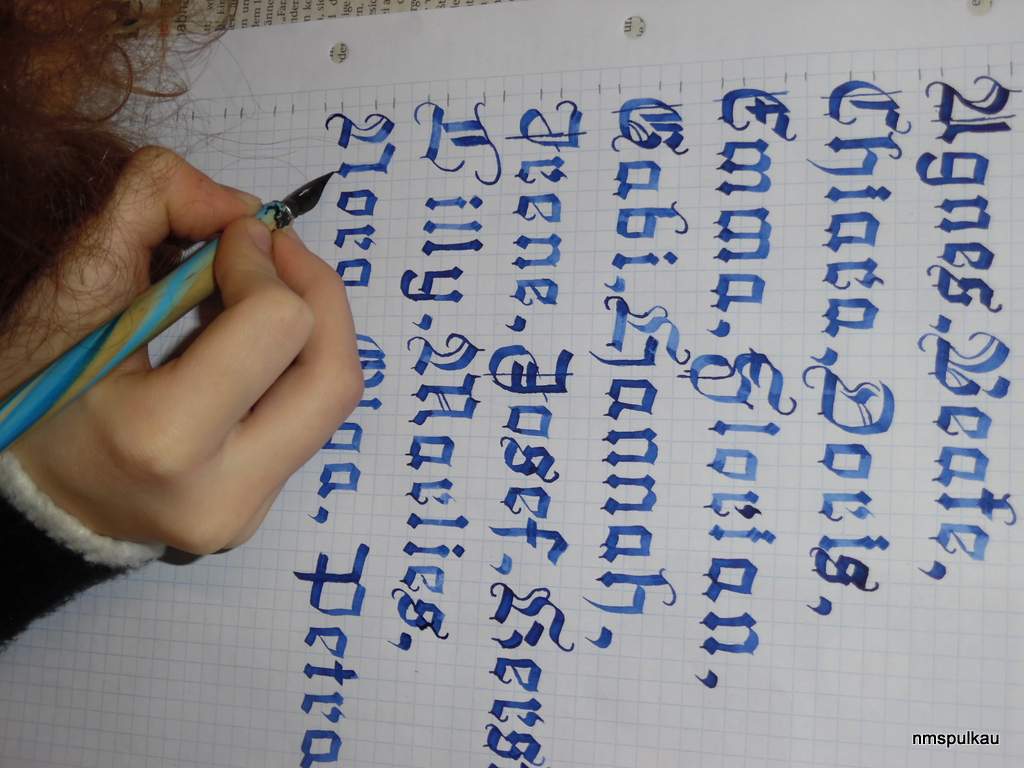 Agnes, Beate,
Chiara, Doris,
Emma, Florian,
Gabi, Hannah,
Irene, Josef,
Lilly, Marlies,
Nora Olga, Petra
nmspulkau